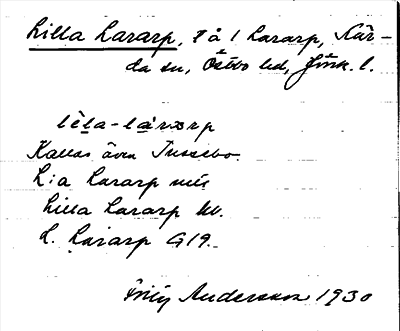 Lilla Lararp, 8 å 1 Lararp, Kär-
da sn, Östbo hd, Jönk. l.
lèla-lárarp
Kallas även Tussebo.
L:a Lararp
Lilla Lararp
L. Lararp G19.
Andersson 1930